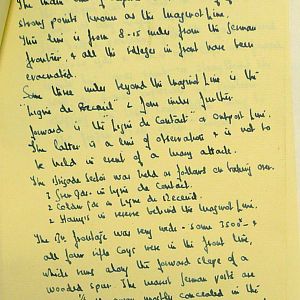 The main line of
strong points known as the Maginot Line.
This line is from 8-15 miles from the German
frontier, & all the villages in front have been
evacuated.
Some three miles beyond the Maginot Line is the
"Ligne de Recueil" & four miles further
forward is the "Ligne de Contact" or outpost line.
The latter is a line of observation & is not to
be held in event of a many attack.
The Brigade Sector was held as follows on taking over.
in Ligne de Contact.
2 in Ligne de Recueil.
2 Hamps in reserve behind the Maginot Line.
The Bn. frontage was very wide - some 3500 &
all four rifle Coys were in the front line,
which runs along the forward slope of a
wooded spur. The nearest German posts are
away mostly concealed in the